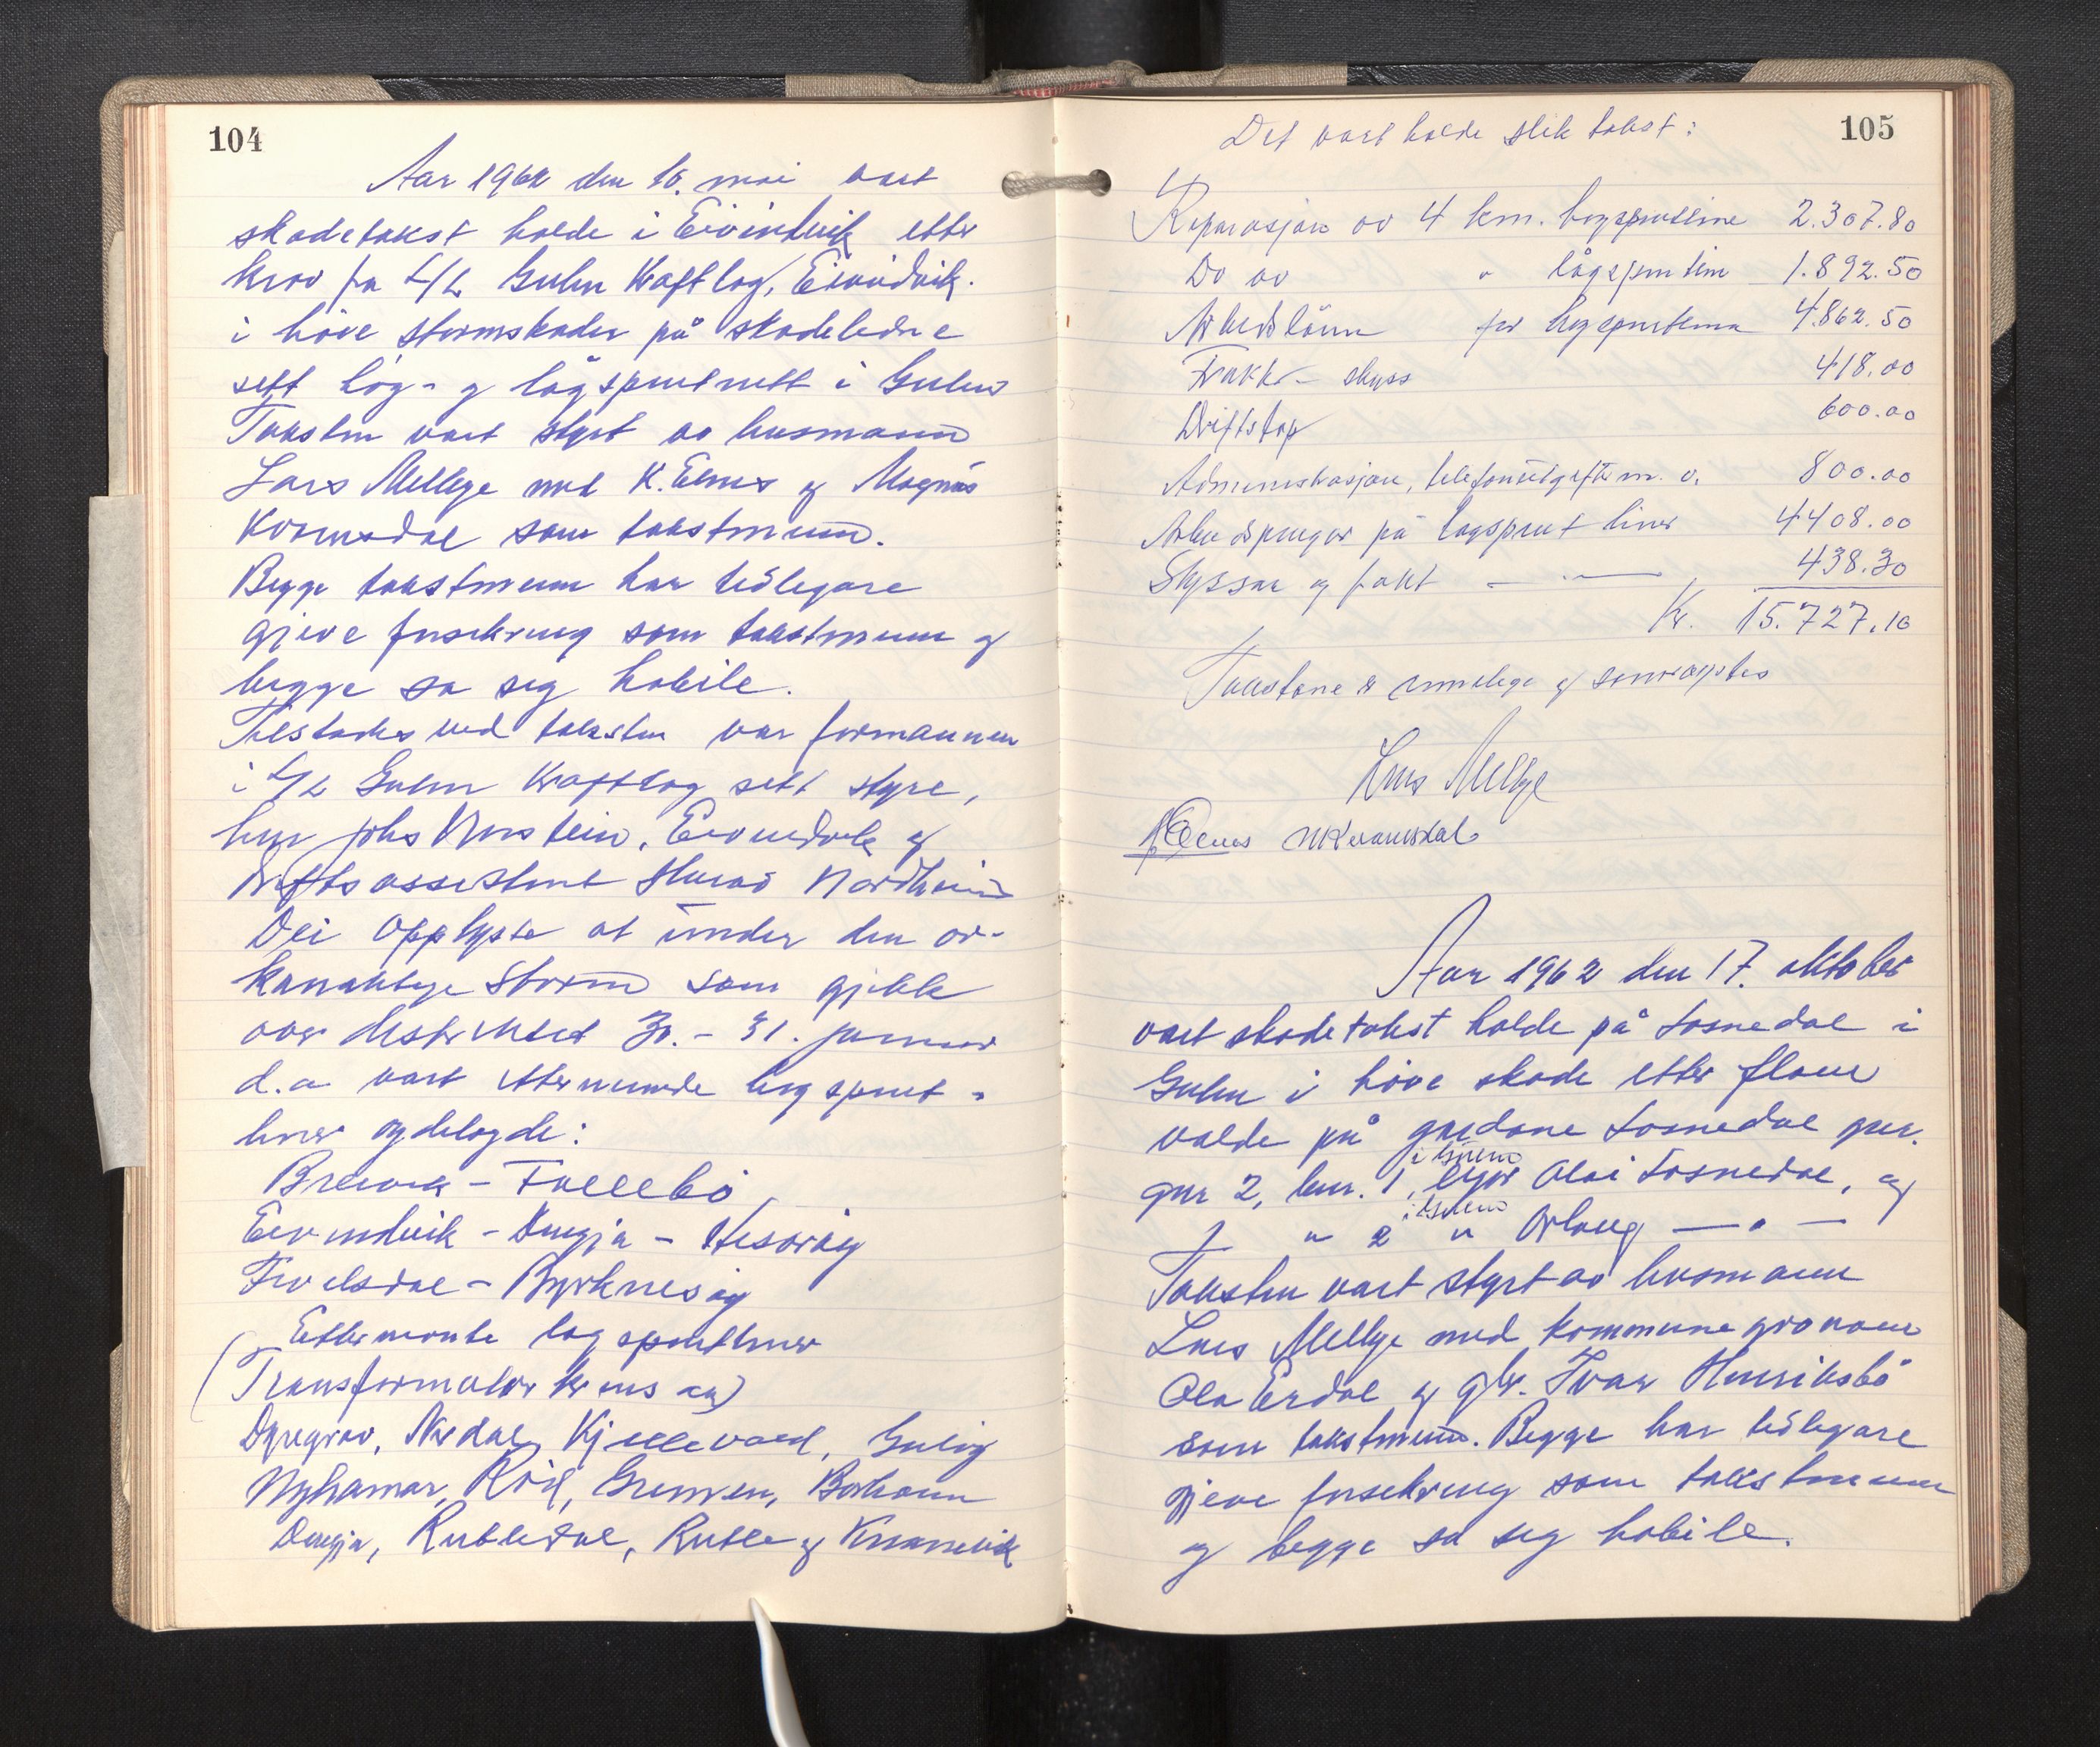 104
Aar 1962 den 10. mai vart
skadetakst halde i Eivindvik etter
krav fra L/L Gulen Kraftlag, Eivindvik.
i höve stormskader på skadelidne
sitt høg- og lågspentnett i Gulen
Taksten vart styrt av lensmann
Lars Mellge med K. Elnes og Magnus
Kvamsdal som takstmenn.
Begge takstmenn har tidlegare
gjeve forsikring som takstmenn og
begge sa seg habile.
Tilstades ved taksten var formannen
i L/L Gulen Kraftlag sitt styre,
herr Johs Ornstein, Eivindvik og
driftsassistent Nordheim
Dei opplyste at under den or-
kanaktige storm som gjekk
over distriktet 30. - 31. januar
d.a vart etternemnde høgspent-
liner øydelagde:
Brekke - Fallebö
Eivindvik - Dingja - Hisaröy
Fivelsdal - Byrknesöy
Etternemnte lagspentliner
(Transformatorkrins ca)
Dyregrov, Nordal, Kjellevold, Gulöy
Nyhamar, Röd, Grensen, Borhaun
Dingja, Rutledal, Rutle og Kvamsvik
105
Det vart halde slik takst:
Reparasjon av 4 km. høgspentline 2.307.80
Do av " lågspentline 1.892.50
Arbeidslönn for høgspentlina 4.862.50
Frakt - skyss 418.00
Driftstap 600.00
Administrasjon, telefonutgifter m. v. 800.00
Arbeidspengar på lagspent liner 4408.00
Skyssar og frakt — " — 438.30
Kr. 15.727.10
Takstane er einselege og samrøystes
Lars Mellge
K Elnes M Kvamsdal
Aar 1962 den 17. oktober
vart skadetakst halde på Tosnedal i
Gulen i höve skade etter flaum
valde på gardane Tosnedal gnr.
gnr 2, bnr. 1, eigar Olai Tosnedal, og
i Gulen
" " 2 " Orlaug — " —
i Gulen
Taksten vart styrt av lensmann
Lars Mellge med kommuneagronom
Ola Erdal og gbr. Ivar Henriksbö
som takstmenn. Begge har tidlegare
gjeve forsikring som takstmenn
og begge sa seg habile.